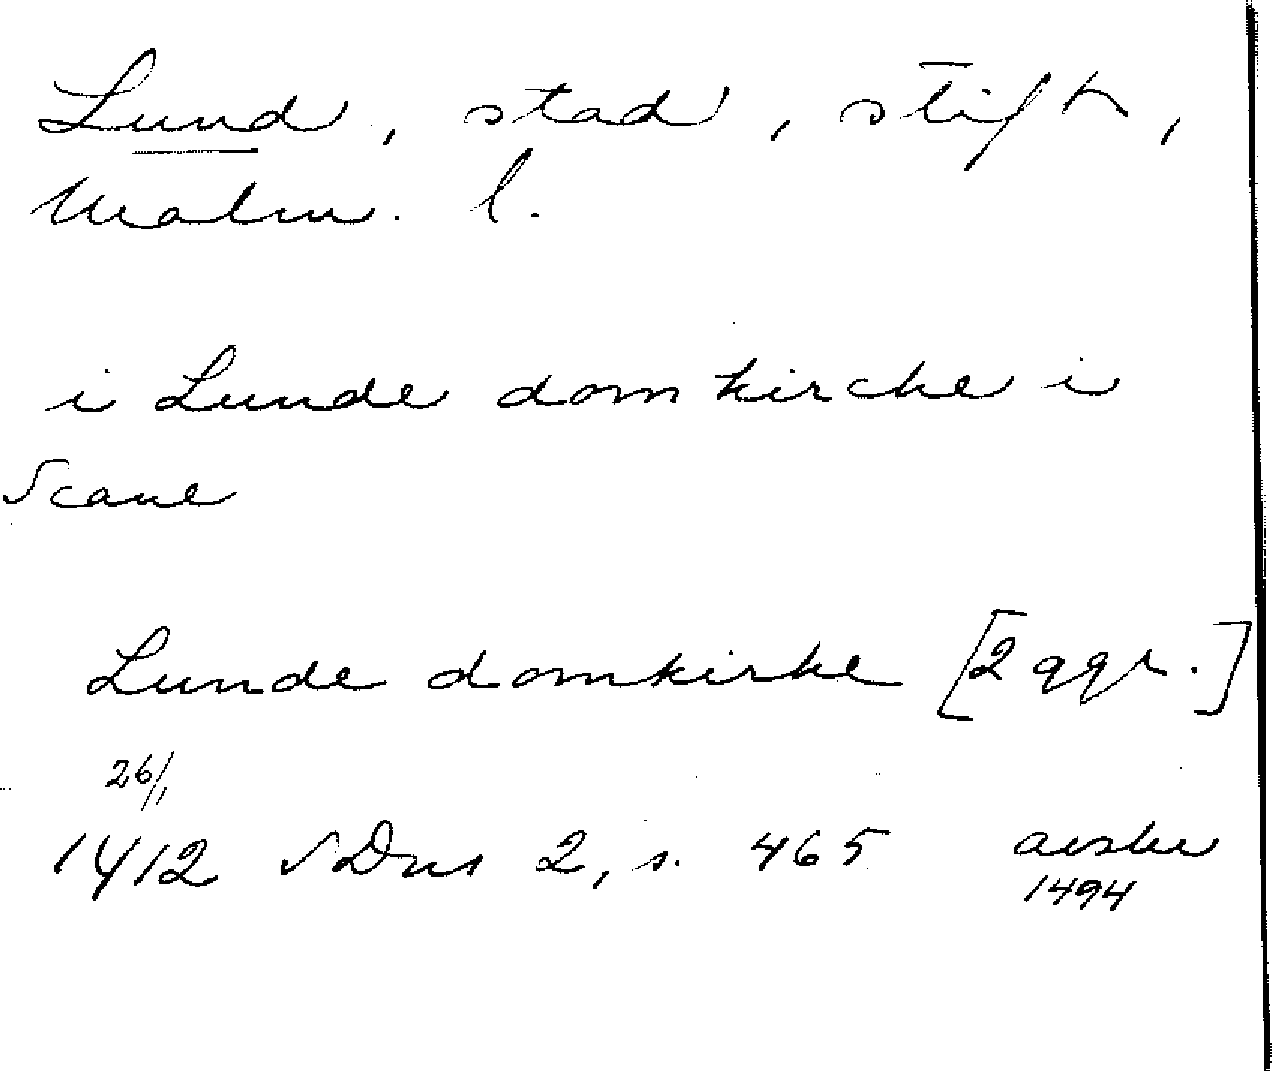 Lund, stad, stift,
Malm. l.
i Lunde domkirche i
Scane
Lunde domkirke [2 ggr.]
26/1
1412 SDns 2, s. 465 avskr
1494